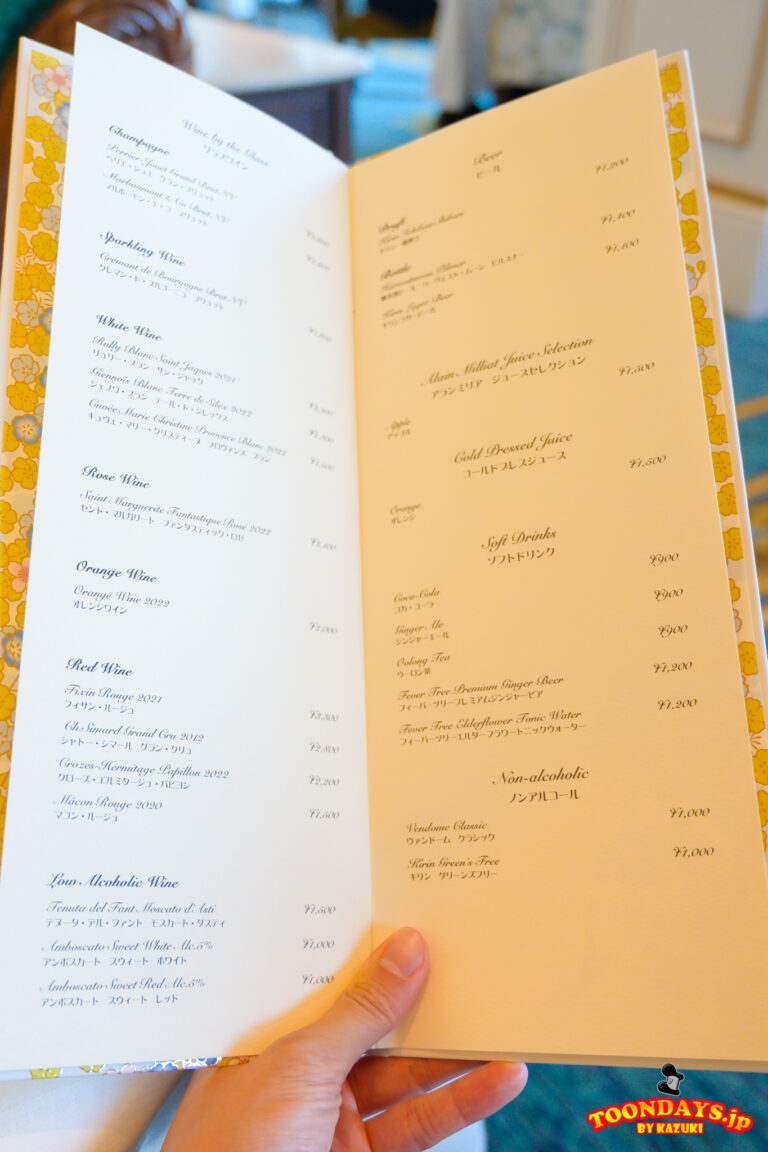 Wine by the Glass
グラスワイン
Champagne
Perrier-Jouet Grand Brut, NV
ペリエ・ジュエ グラン・ブリュット
Marhaumont & Co Brut, NV
マルホーモン・エ・コ ブリュット
Sparkling Wine
Crémant de Bourgogne Brut, NV
クレマン・ド・ブルゴーニュ ブリュット
White Wine
Rully Blanc Saint Jaques 2021
リュリー・ブラン サン・ジャック
Giennois Blanc Terre de Silex 2022
ジェノワ・ブラン テール・ド・シレックス
Cuvée Marie Christine Provence Blanc 2022
キュヴェ・マリー・クリスティーヌ プロヴァンス ブラン
¥1,500
Rose Wine
Saint Marguerite Fantastique Rosé 2022
セント・マルガリート ファンタスティック・ロゼ
¥2,100
Orange Wine
Orange Wine 2022
オレンジワイン
¥2,000
Red Wine
Fixin Rouge 2021
フィサン・ルージュ
¥3,300
Ch.Simard Grand Cru 2012
シャトー・シマール グラン・クリュ
¥2,800
Crozes-Hermitage Papillon 2022
クローズ・エルミタージュ・パピヨン
¥2,200
Mâcon Rouge 2020
マコン・ルージュ
¥1,500
Low Alcoholic Wine
Tenuta del Fant Moscato d'Asti
テヌータ・デル・ファント モスカート・ダスティ
¥1,500
Amboscato Sweet White Alc.5%
アンボスカート スウィート ホワイト
¥1,000
Amboscato Sweet Red Alc.5%
アンボスカート スウィート レッド
¥1,000
Beer
ビール
Draft
Kirin Ichiban Shibori
キリン 一番搾り
¥1,200
Bottle
ハーヴェスト・ムーン ピルスナー
¥1,400
Kirin Lager Beer
キリンラガービール
¥1,100
Alain Milliat Juice Selection
アランミリア ジュースセレクション
Apple
アップル
¥1,500
Cold Pressed Juice
コールドプレスジュース
Orange
オレンジ
¥1,500
Soft Drinks
ソフトドリンク
Coca-Cola
コカ・コーラ
¥900
Ginger Ale
ジンジャーエール
¥900
Oolong Tea
ウーロン茶
¥900
Fever Tree Premium Ginger Beer
フィーバーツリープレミアムジンジャービア
¥1,200
Fever Tree Elderflower Tonic Water
フィーバーツリーエルダーフラワートニックウォーター
¥1,200
Non-alcoholic
ノンアルコール
Vendome Classic
ヴァンドーム クラシック
¥1,000
Kirin Green's Free
キリン グリーンズフリー
¥1,000
TOONDAYS.jp
BY KAZUKI